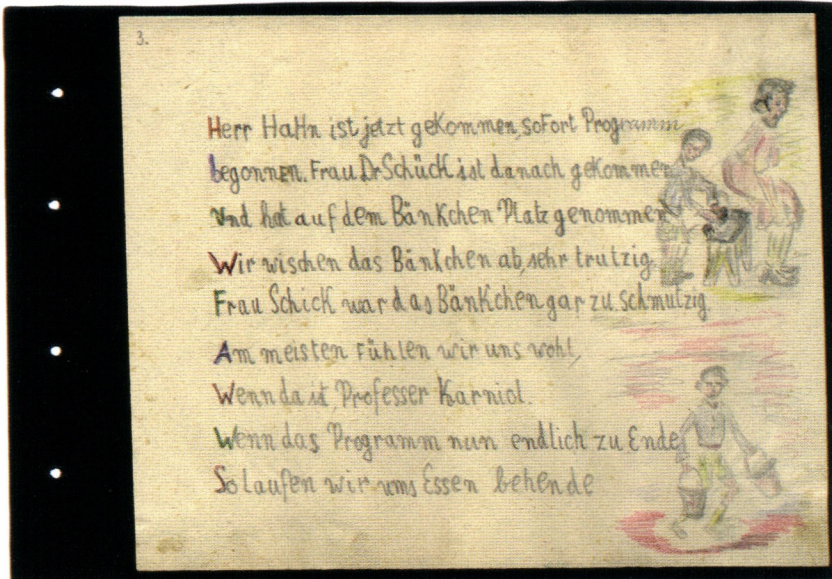 3.
Herr HaHn ist jetzt gekommen, sofort Programm
begonnen. Frau Dr Schück ist danach gekommen
Und hat auf dem Bänkchen Platz genommen
Wir wischen das Bänkchen ab, sehr trutzig
Frau Schick war das Bänkchen gar zu schmutzig.
Am meisten fühlen wir uns wohl,
Wenn da ist, Professer Karniol.
Wenn das Programm nun endlich zu Ende
So laufen wir ums Essen behende